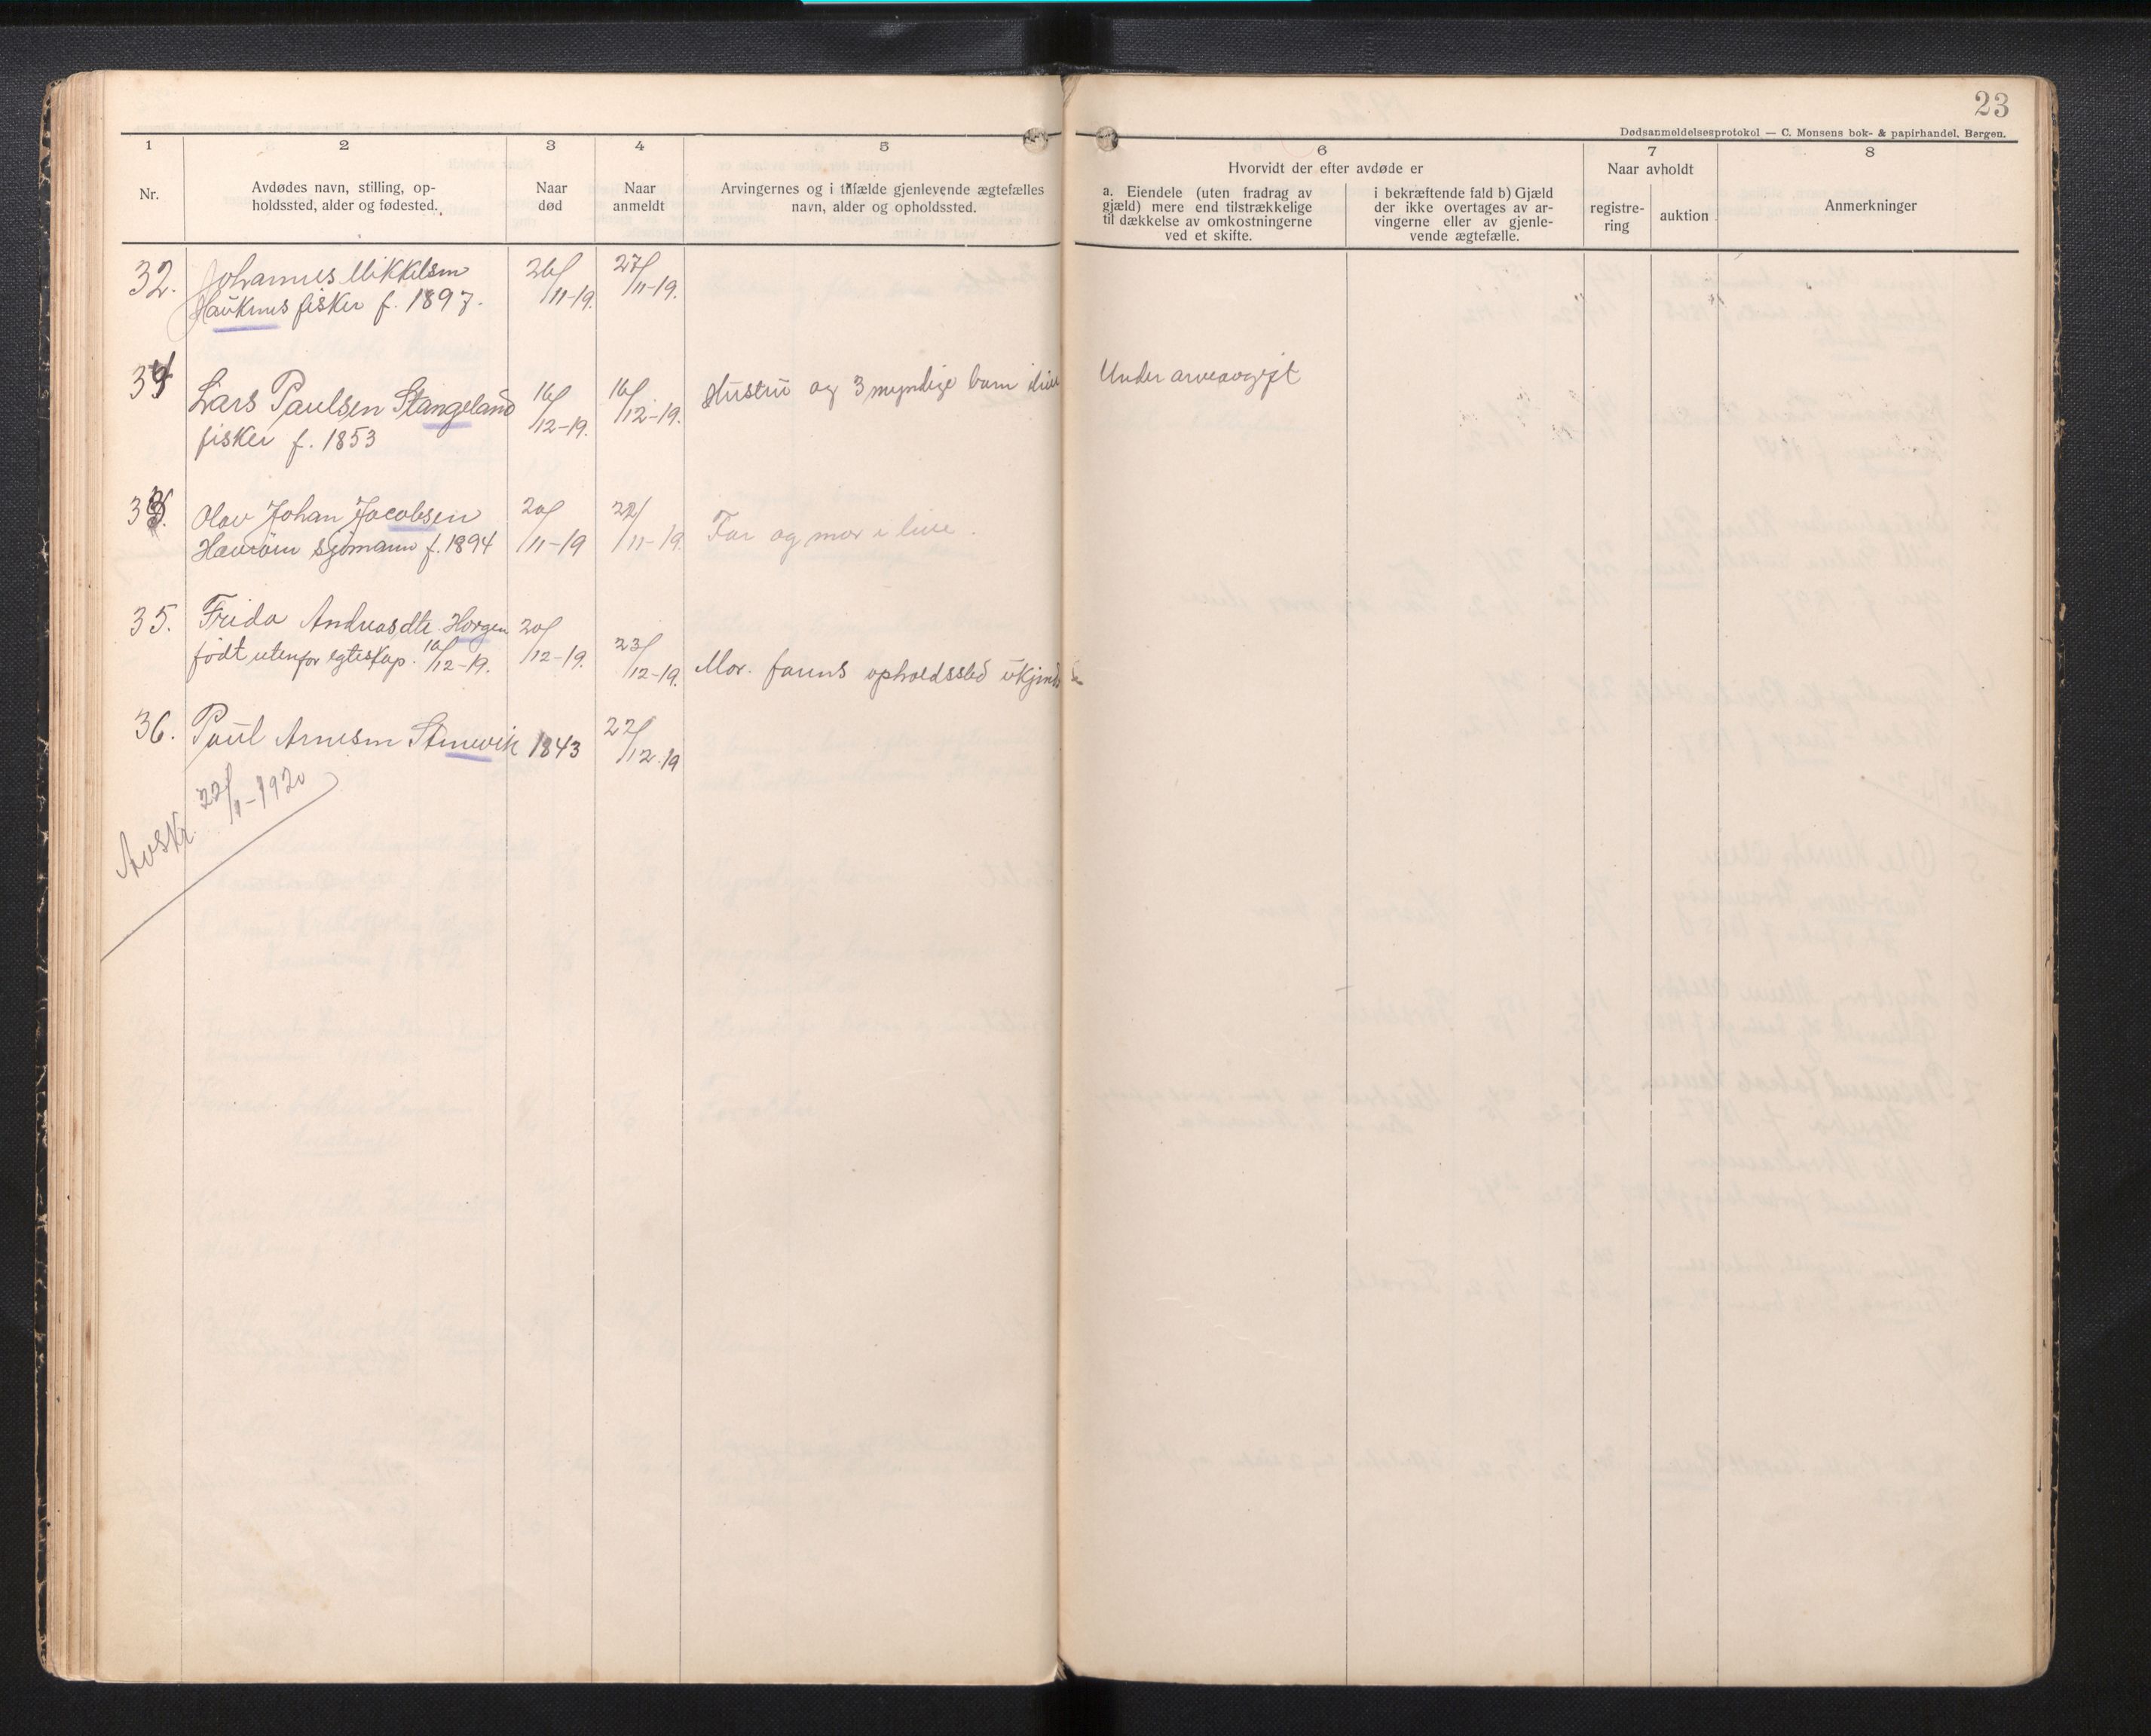 23
Dødsanmeldelsesprotokol — C. Monsens bok- & papirhandel. Bergen.
1
2
3
4
5
6
7
8
Nr.
Avdødes navn, stilling, op-
holdssted, alder og fødested.
Naar
død
Naar
anmeldt
Arvingernes og i tilfælde gjenlevende ægtefælles
navn, alder og opholdssted.
Hvorvidt der efter avdøde er
a. Eiendele (uten fradrag av
gjæld) mere end tilstrækkelige
til dækkelse av omkostningerne
ved et skifte.
i bekræftende fald b) Gjæld
der ikke overtages av ar-
vingerne eller av gjenle-
vende ægtefælle.
Naar avholdt
registre-
ring
auktion
Anmerkninger
32. Johannes Mikkelsen 26/11-19. 27/11-19.
Hauknes fisker f. 1897.
Lars Paulsen Stangeland 16/12-19. 16/12-19. Hustru og 3 myndige barn ilive Under arveavgift
fisker f. 1853
Olav Johan Jacobsen 20/11-19 22/11-19. Far og mor i live.
sjømann f. 1894
35. Frida Andreasdtr. Horgen 20/12-19. 23/12-19. Mor. farens opholdssted ukjendt
født utenfor egteskap. 10/12-19.
36. Paul Arnesen Stenevik 1843 22/12.19
Avskr. 22/1-1920